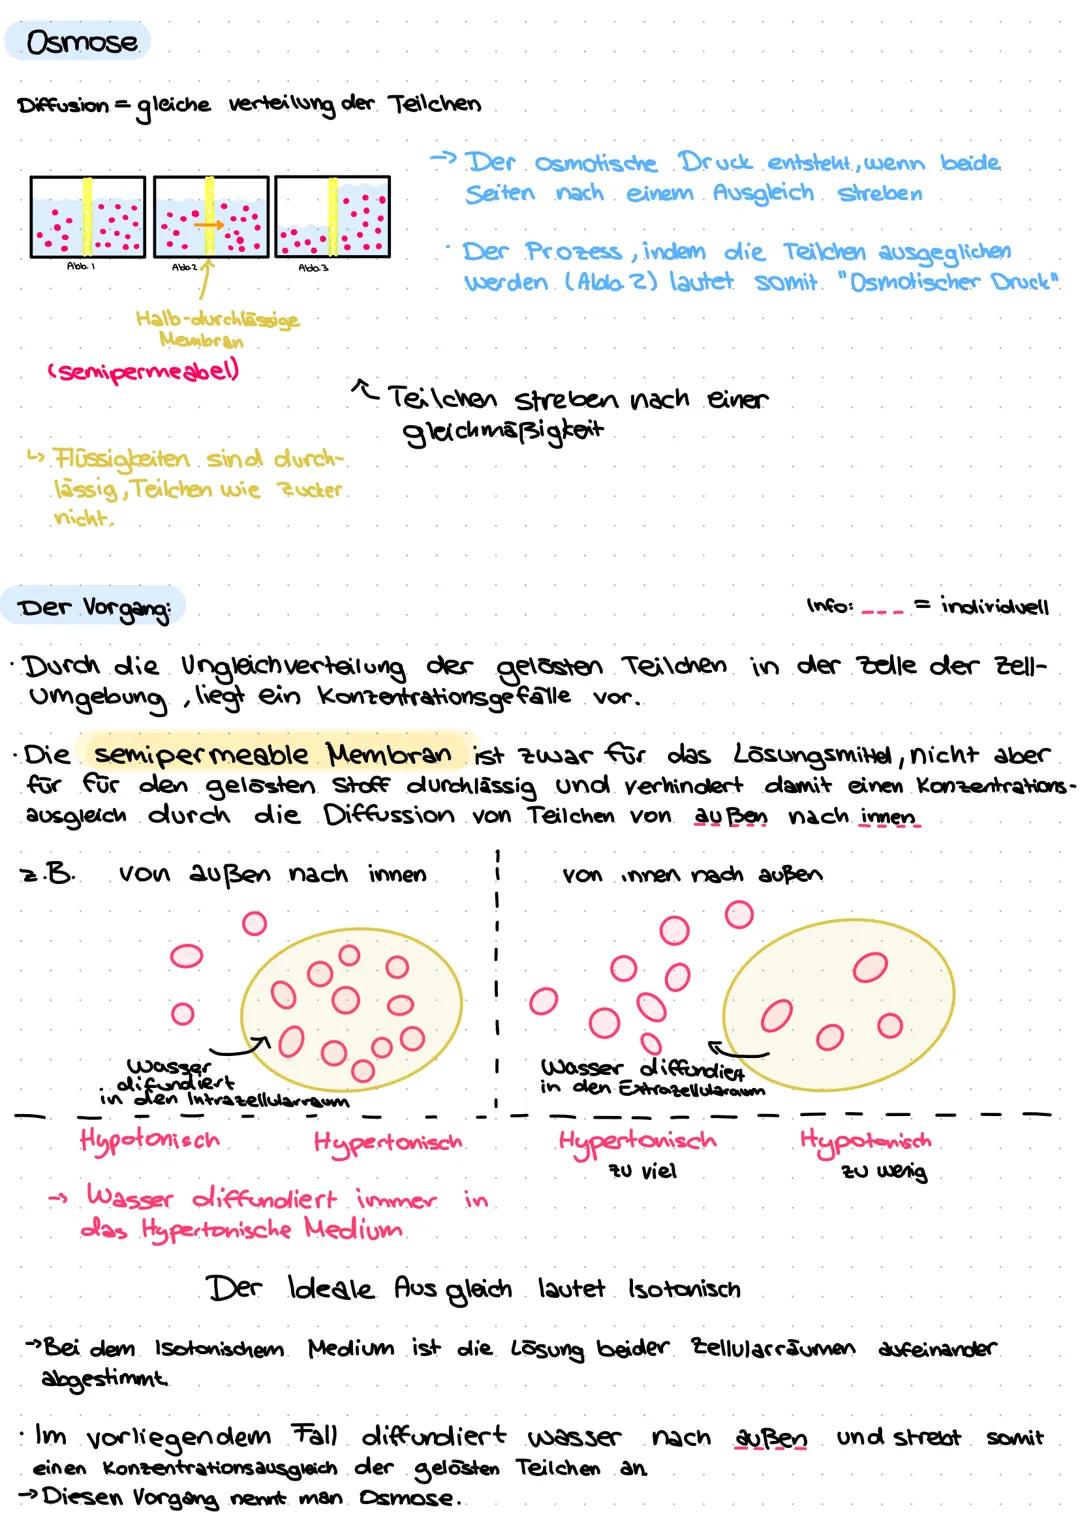 Osmose
Diffusion = gleiche verteilung der Teilchen
→ Der osmotische Druck entsteht, wenn beide
Seiten nach einem Ausgleich streben
· Der Prozess, indem die Teilchen ausgeglichen
werden (Abb. 2) lautet somit "Osmotischer Druck"
Abb. 1
Abb. 2
Abb. 3
Halb-durchlässige
Membran
(semipermeabel)
↖ Teilchen streben nach einer
gleichmäßigkeit
↳ Flüssigkeiten sind durch-
lässig, Teilchen wie Zucker
nicht.
Der Vorgang:
Info: --- = individuell
· Durch die Ungleichverteilung der gelösten Teilchen in der Zelle der Zell-
Umgebung, liegt ein Konzentrationsgefälle vor.
· Die semipermeable Membran ist zwar für das Lösungsmittel, nicht aber
für für den gelösten Stoff durchlässig und verhindert damit einen Konzentrations-
ausgleich durch die Diffussion von Teilchen von außen nach innen
z.B. von außen nach innen
von innen nach außen
Wasser
difundiert
in den Intrazellularraum
Wasser diffundiert
in den Extrazellularaum
Hypotonisch
Hypertonisch
Hypertonisch
zu viel
Hypotonisch
zu wenig
→ Wasser diffundiert immer in
das Hypertonische Medium
Der Ideale Ausgleich lautet Isotonisch
→ Bei dem Isotonischem Medium ist die Lösung beider Zellularräumen aufeinander
abgestimmt.
· Im vorliegendem Fall diffundiert wasser nach außen und strebt somit
einen Konzentrationsausgleich der gelösten Teilchen an
→ Diesen Vorgang nennt man Osmose.